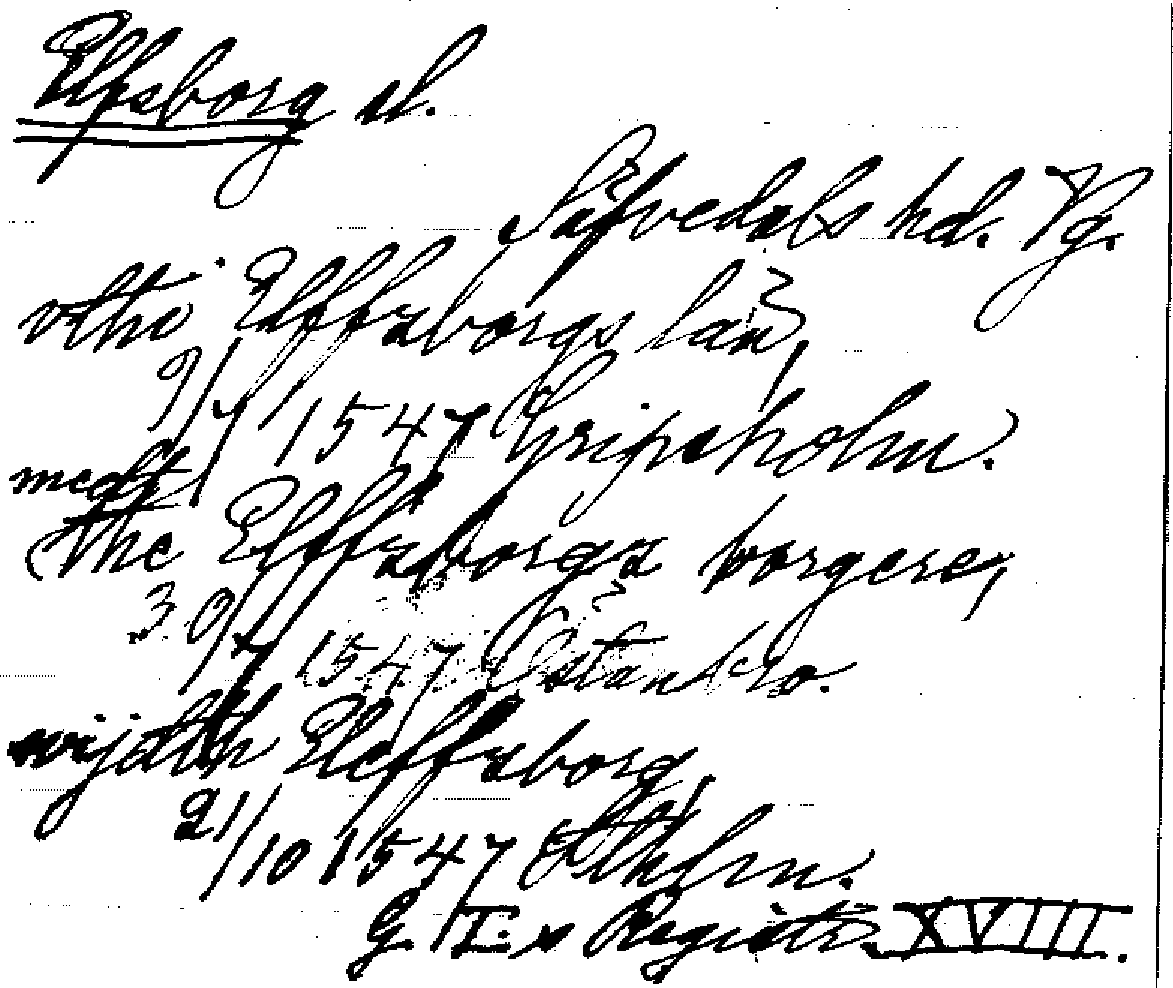 Elfsborg sl.
Säfvedals hd. Vg.
vtho Elffzborgs län,
9/7 1547 Gripsholm.
medt
the Elffzborga borgere,
30/7 1547 Östanbro.
wijdth Eleffzborg,
21/10 1547 Sthlm.
G. I:s Registr. XVIII.